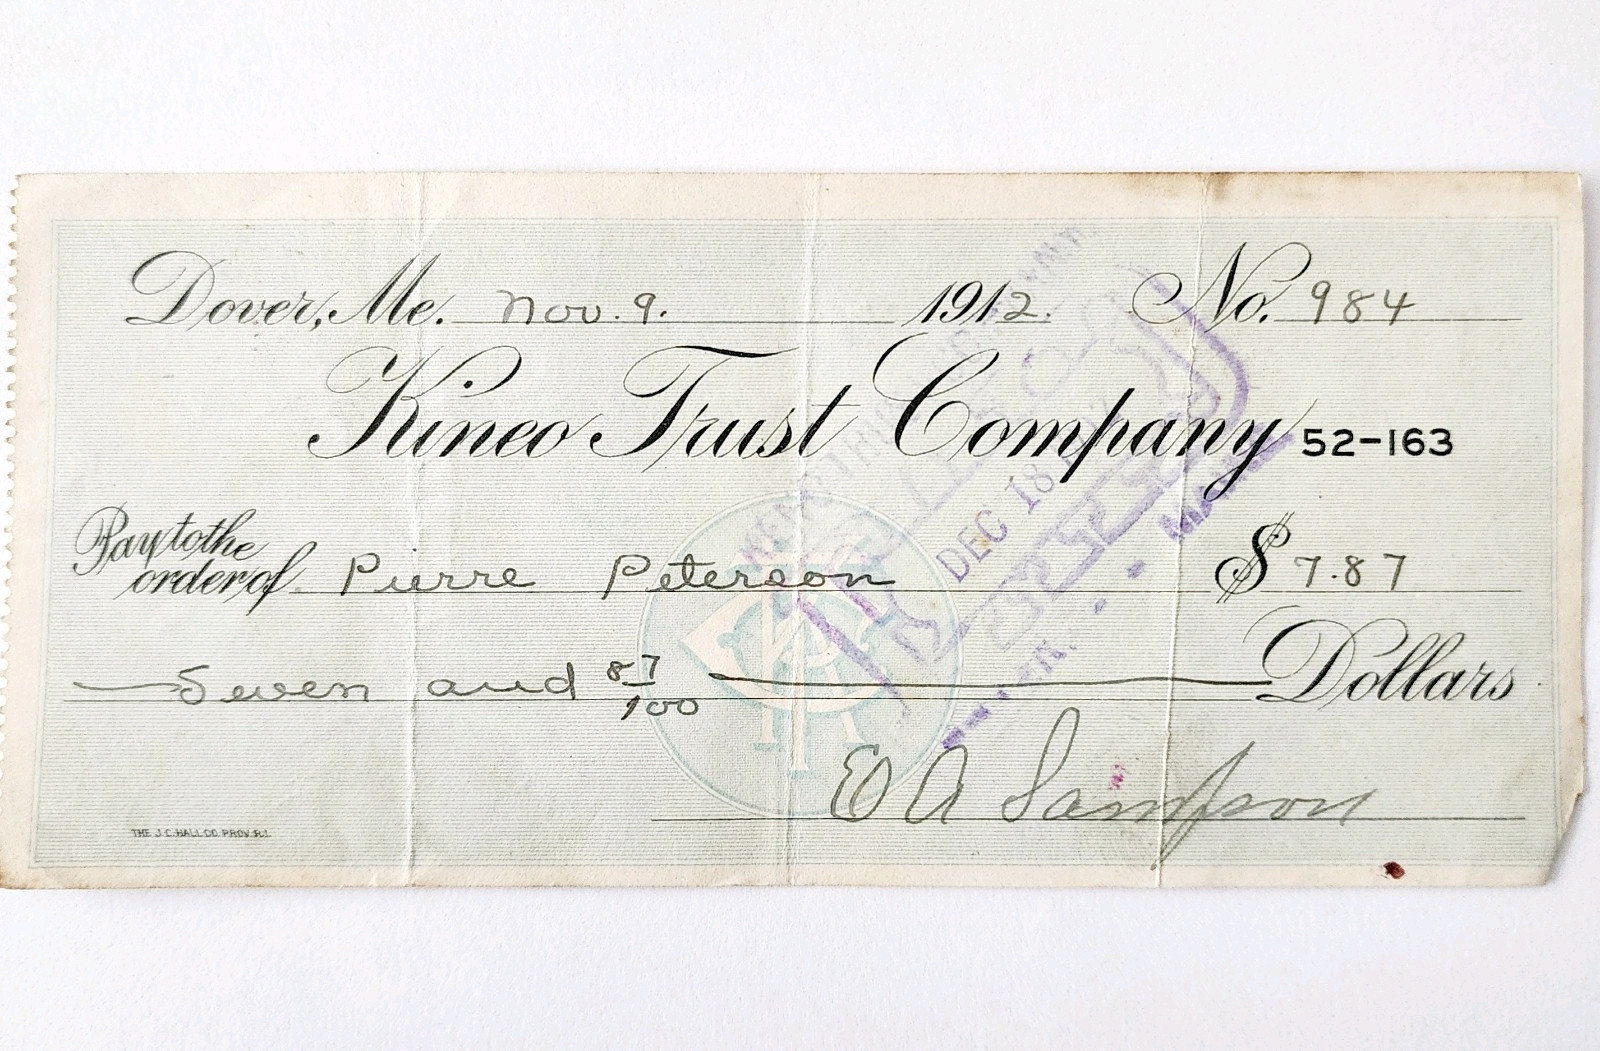 Dover, Me. Nov. 9. 1912. No. 984
Kineo Trust Company 52-163
Pay to the
order of Pierre Peterson $ 7.87
Seven and 87/100 Dollars
DEC 18
E A Sampson
THE J.C. HALL CO. PROV. R.I.